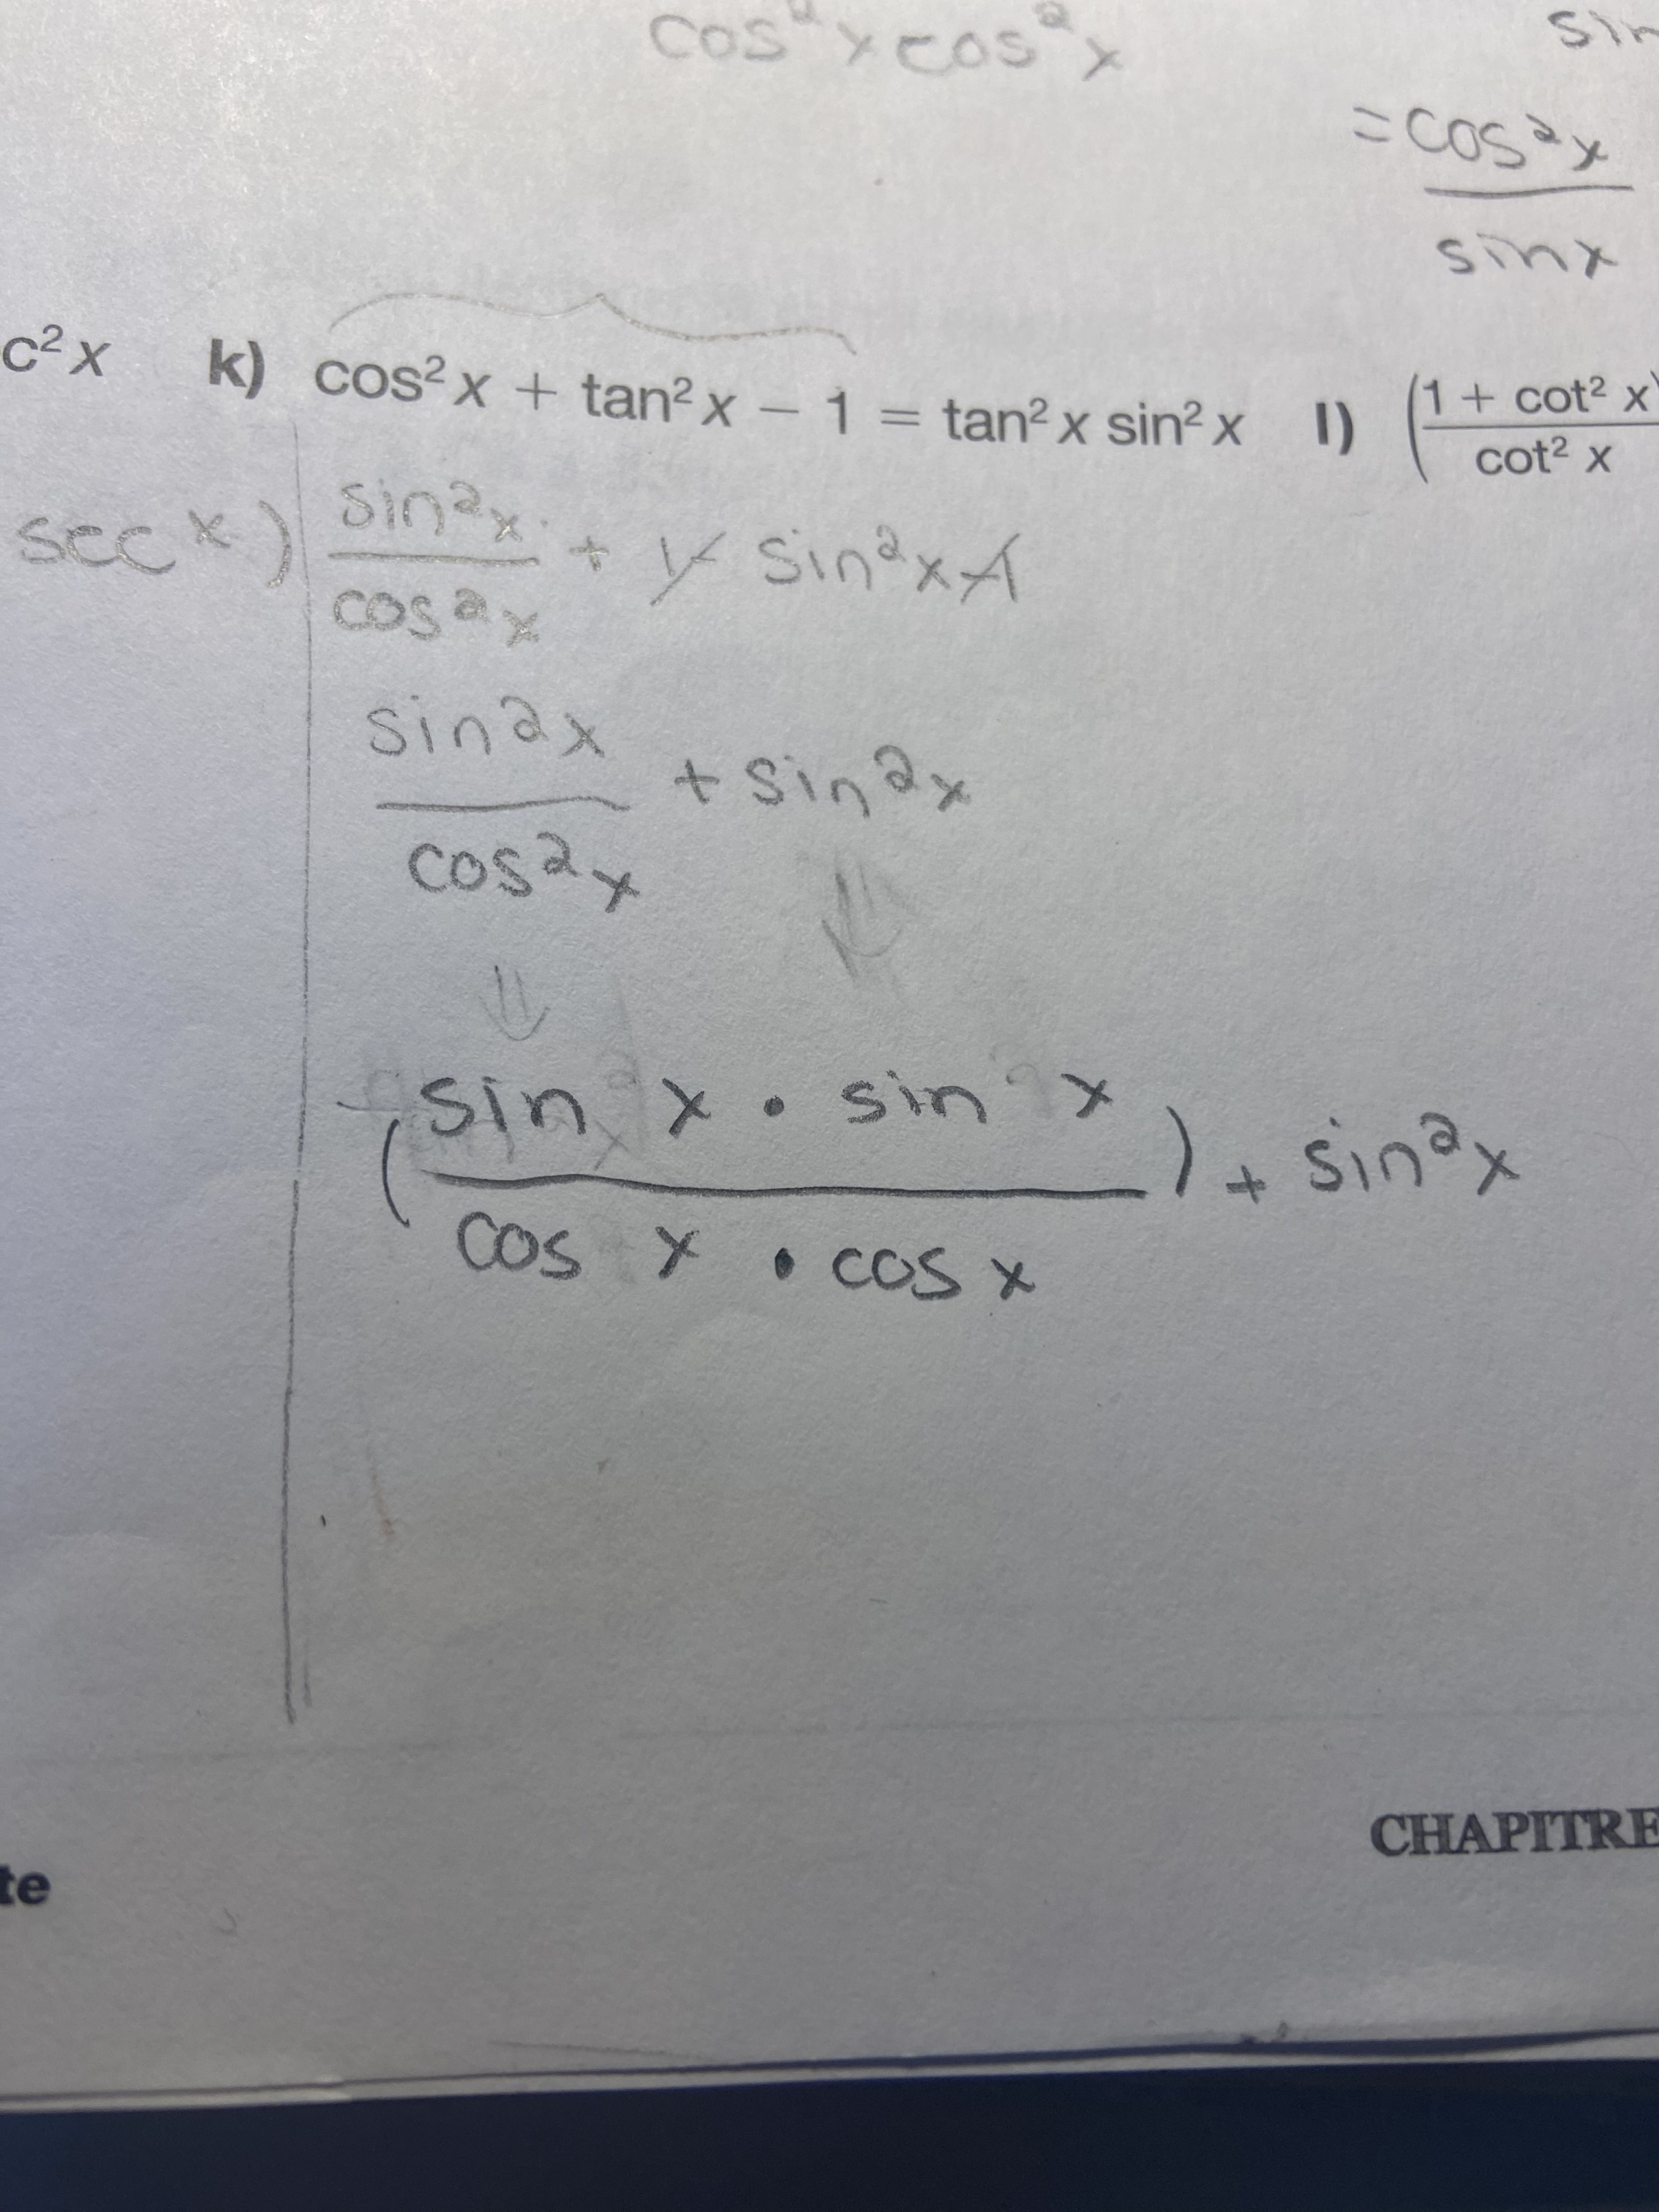 cos² x cos² x
sin
= cos² x
sin x
c² x k) cos² x + tan² x − 1 = tan² x sin² x l) (1 + cot² x)
cot² x
sec x) sin² x + 1 − sin² x − 1
cos² x
sin² x + sin² x
cos² x
⇓ ⇓
(sin x · sin x) + sin² x
cos x · cos x
CHAPITRE
te